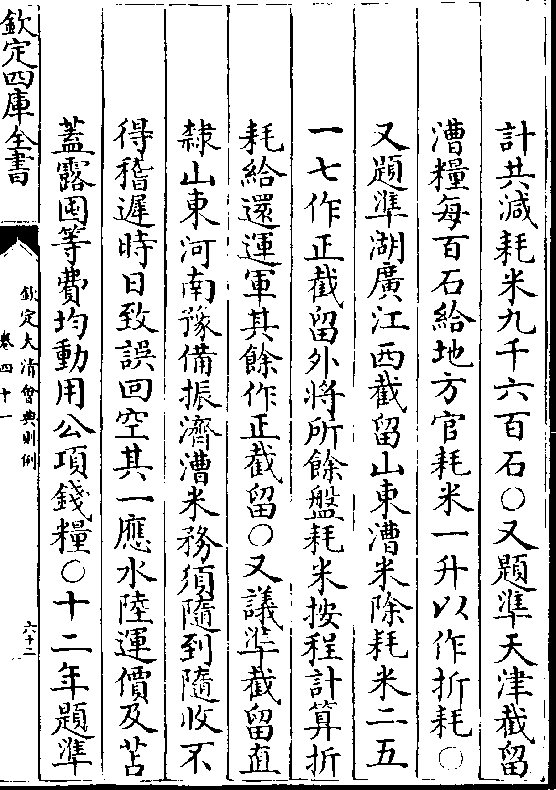 計共減耗米九千六百石○又題準天津截留
漕糧每百石給地方官耗米一升以作折耗○
又題準湖廣江西截留山東漕米除耗米二五
一七作正截留外將所餘盤耗米按程計算折
耗給還運軍其餘作正截留○又議準截留直
隸山東河南豫備振濟漕米務須隨到隨收不
得稽遲時日致誤回空其一應水陸運價及苫
蓋露囤等費均動用公項錢糧○十二年題準
欽定四庫全書
欽定大清會典則例
卷四十一
六十二